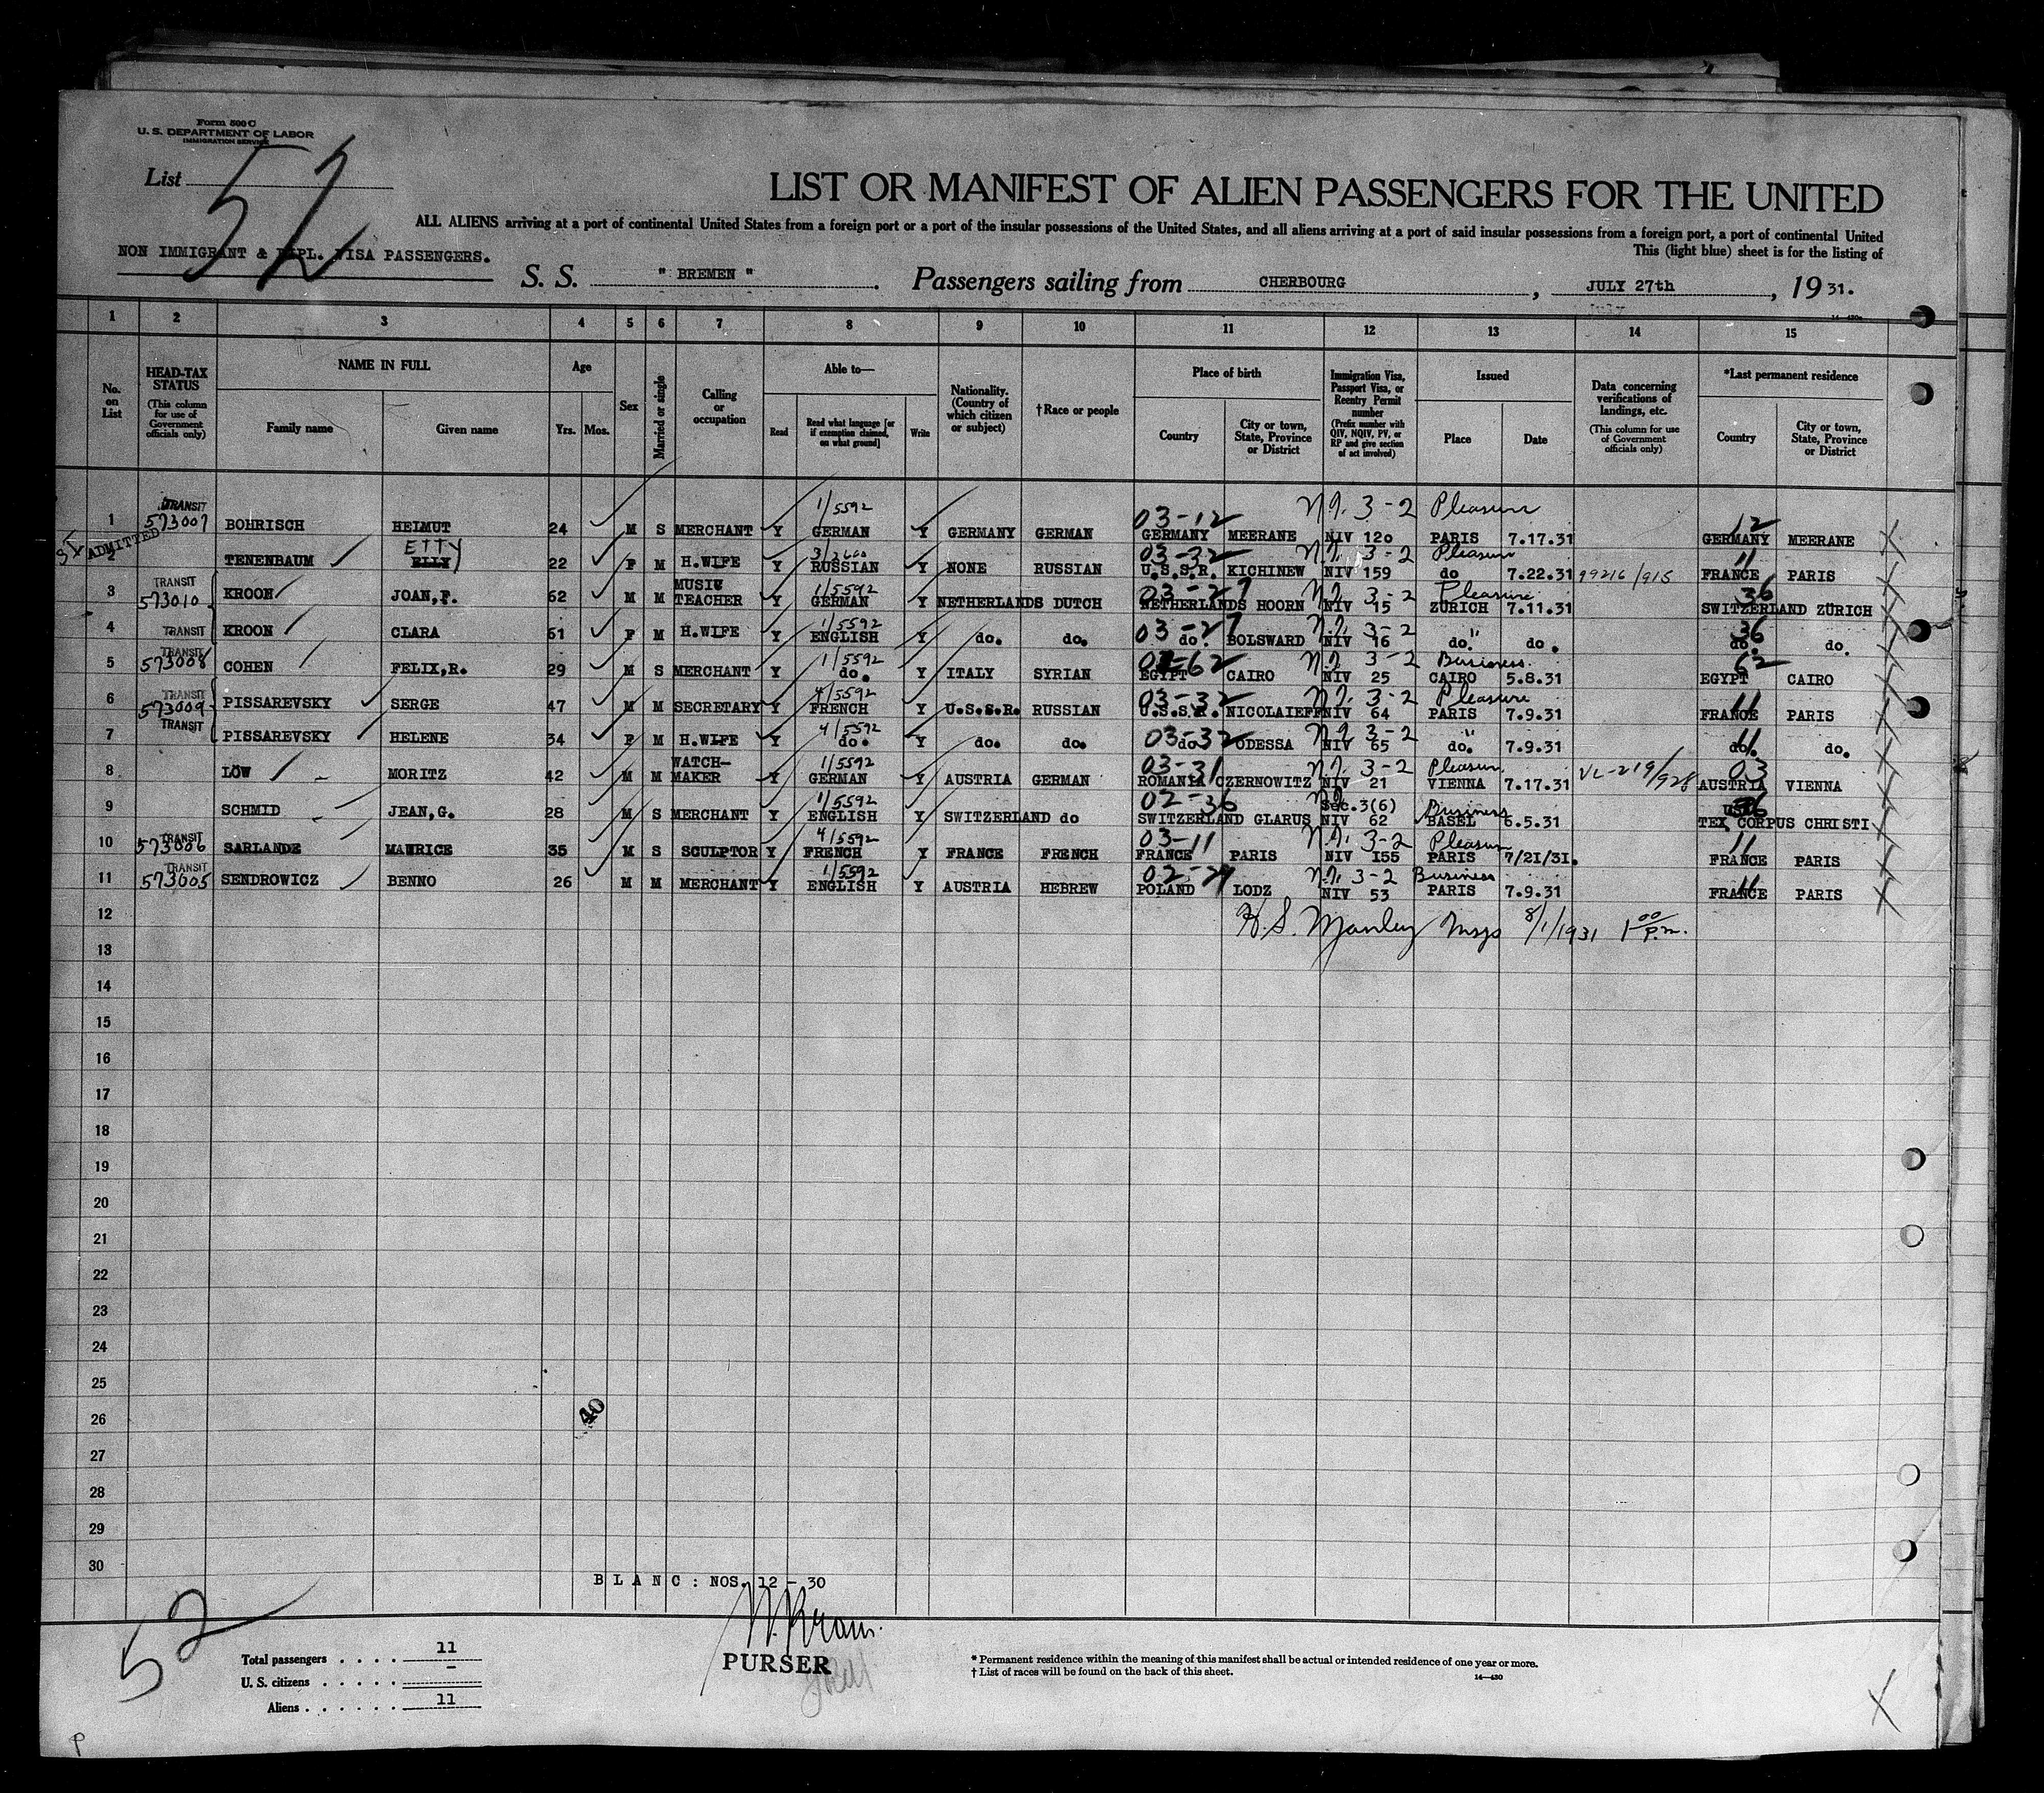 Form 500 C
U. S. DEPARTMENT OF LABOR
IMMIGRATION SERVICE
List 52
LIST OR MANIFEST OF ALIEN PASSENGERS FOR THE UNITED
ALL ALIENS arriving at a port of continental United States from a foreign port or a port of the insular possessions of the United States, and all aliens arriving at a port of said insular possessions from a foreign port, a port of continental United
This (light blue) sheet is for the listing of
NON IMMIGRANT & DIPL. VISA PASSENGERS.
S. S. " BREMEN " . Passengers sailing from CHERBOURG , JULY 27th , 19 31.
1 2 3 4 5 6 7 8 9 10 11 12 13 14 15
No. on List
HEAD-TAX STATUS (This column for use of Government officials only)
NAME IN FULL Family name Given name
Age Yrs. Mos.
Sex
Married or single
Calling or occupation
Able to— Read Read what language [or if exemption claimed, on what ground] Write
Nationality. (Country of which citizen or subject)
†Race or people
Place of birth Country City or town, State, Province or District
Immigration Visa, Passport Visa, or Reentry Permit number (Prefix number with QIV, NQIV, PV, or RP and give section of act involved)
Issued Place Date
Data concerning verifications of landings, etc. (This column for use of Government officials only)
*Last permanent residence Country City or town, State, Province or District
TRANSIT 1/5592 03-12 3-2 Pleasure 12
1 573007 BOHRISCH HELMUT 24 M S MERCHANT Y GERMAN Y GERMANY GERMAN GERMANY MEERANE NIV 120 PARIS 7.17.31 GERMANY MEERANE X
ADMITTED ETTY 3/2660 03-32 3-2 Pleasure 11
2 TENENBAUM ELLY 22 F M H.WIFE Y RUSSIAN Y NONE RUSSIAN U.S.S.R. KICHINEW NIV 159 do 7.22.31 99216/915 FRANCE PARIS X
TRANSIT 1/5592 03-27 3-2 Pleasure 36
3 573010 KROON JOAN,F. 62 M M MUSIC TEACHER Y GERMAN Y NETHERLANDS DUTCH NETHERLANDS HOORN NIV 15 ZURICH 7.11.31 SWITZERLAND ZÜRICH X
1/5592 03-27 3-2 " 36
4 TRANSIT KROON CLARA 61 F M H.WIFE Y ENGLISH Y do. do. do. BOLSWARD NIV 16 do. do. do. do. X
TRANSIT 1/5592 62 3-2 Business. 62
5 573008 COHEN FELIX,R. 29 M S MERCHANT Y do. Y ITALY SYRIAN EGYPT CAIRO NIV 25 CAIRO 5.8.31 EGYPT CAIRO X
TRANSIT 4/5592 03-32 3-2 Pleasure 11
6 573009 PISSAREVSKY SERGE 47 M M SECRETARY Y FRENCH Y U.S.S.R. RUSSIAN U.S.S.R. NICOLAIEFF NIV 64 PARIS 7.9.31 FRANCE PARIS X
4/5592 03-32 3-2 " 11
7 TRANSIT PISSAREVSKY HELENE 34 F M H.WIFE Y do. Y do. do. do ODESSA NIV 65 do. 7.9.31 do. do. X
1/5592 03-31 3-2 Pleasure 03
8 LÖW MORITZ 42 M M WATCH-MAKER Y GERMAN Y AUSTRIA GERMAN ROMANIA CZERNOWITZ NIV 21 VIENNA 7.17.31 VL-219/928 AUSTRIA VIENNA X
1/5592 02-36 Sec.3(6) Business
9 SCHMID JEAN,G. 28 M S MERCHANT Y ENGLISH Y SWITZERLAND do SWITZERLAND GLARUS NIV 62 BASEL 6.5.31 TEX CORPUS CHRISTI X
TRANSIT 4/5592 03-11 3-2 Pleasure 11
10 573006 SARLANDE MAURICE 35 M S SCULPTOR Y FRENCH Y FRANCE FRENCH FRANCE PARIS NIV 155 PARIS 7/21/31. FRANCE PARIS X
TRANSIT 1/5592 3-2 Business 11
11 573005 SENDROWICZ BENNO 26 M M MERCHANT Y ENGLISH Y AUSTRIA HEBREW POLAND LODZ NIV 53 PARIS 7.9.31 FRANCE PARIS X
12 H.S. Manley 8/1/1931 1 00 P.m.
13
14
15
16
17
18
19
20
21
22
23
24
25
26 40
27
28
29
30
B L A N C : NOS. 12 - 30
52
PURSER
Total passengers . . . . 11
U. S. citizens . . . . . –
Aliens . . . . . . 11
* Permanent residence within the meaning of this manifest shall be actual or intended residence of one year or more.
† List of races will be found on the back of this sheet.
14—430
X